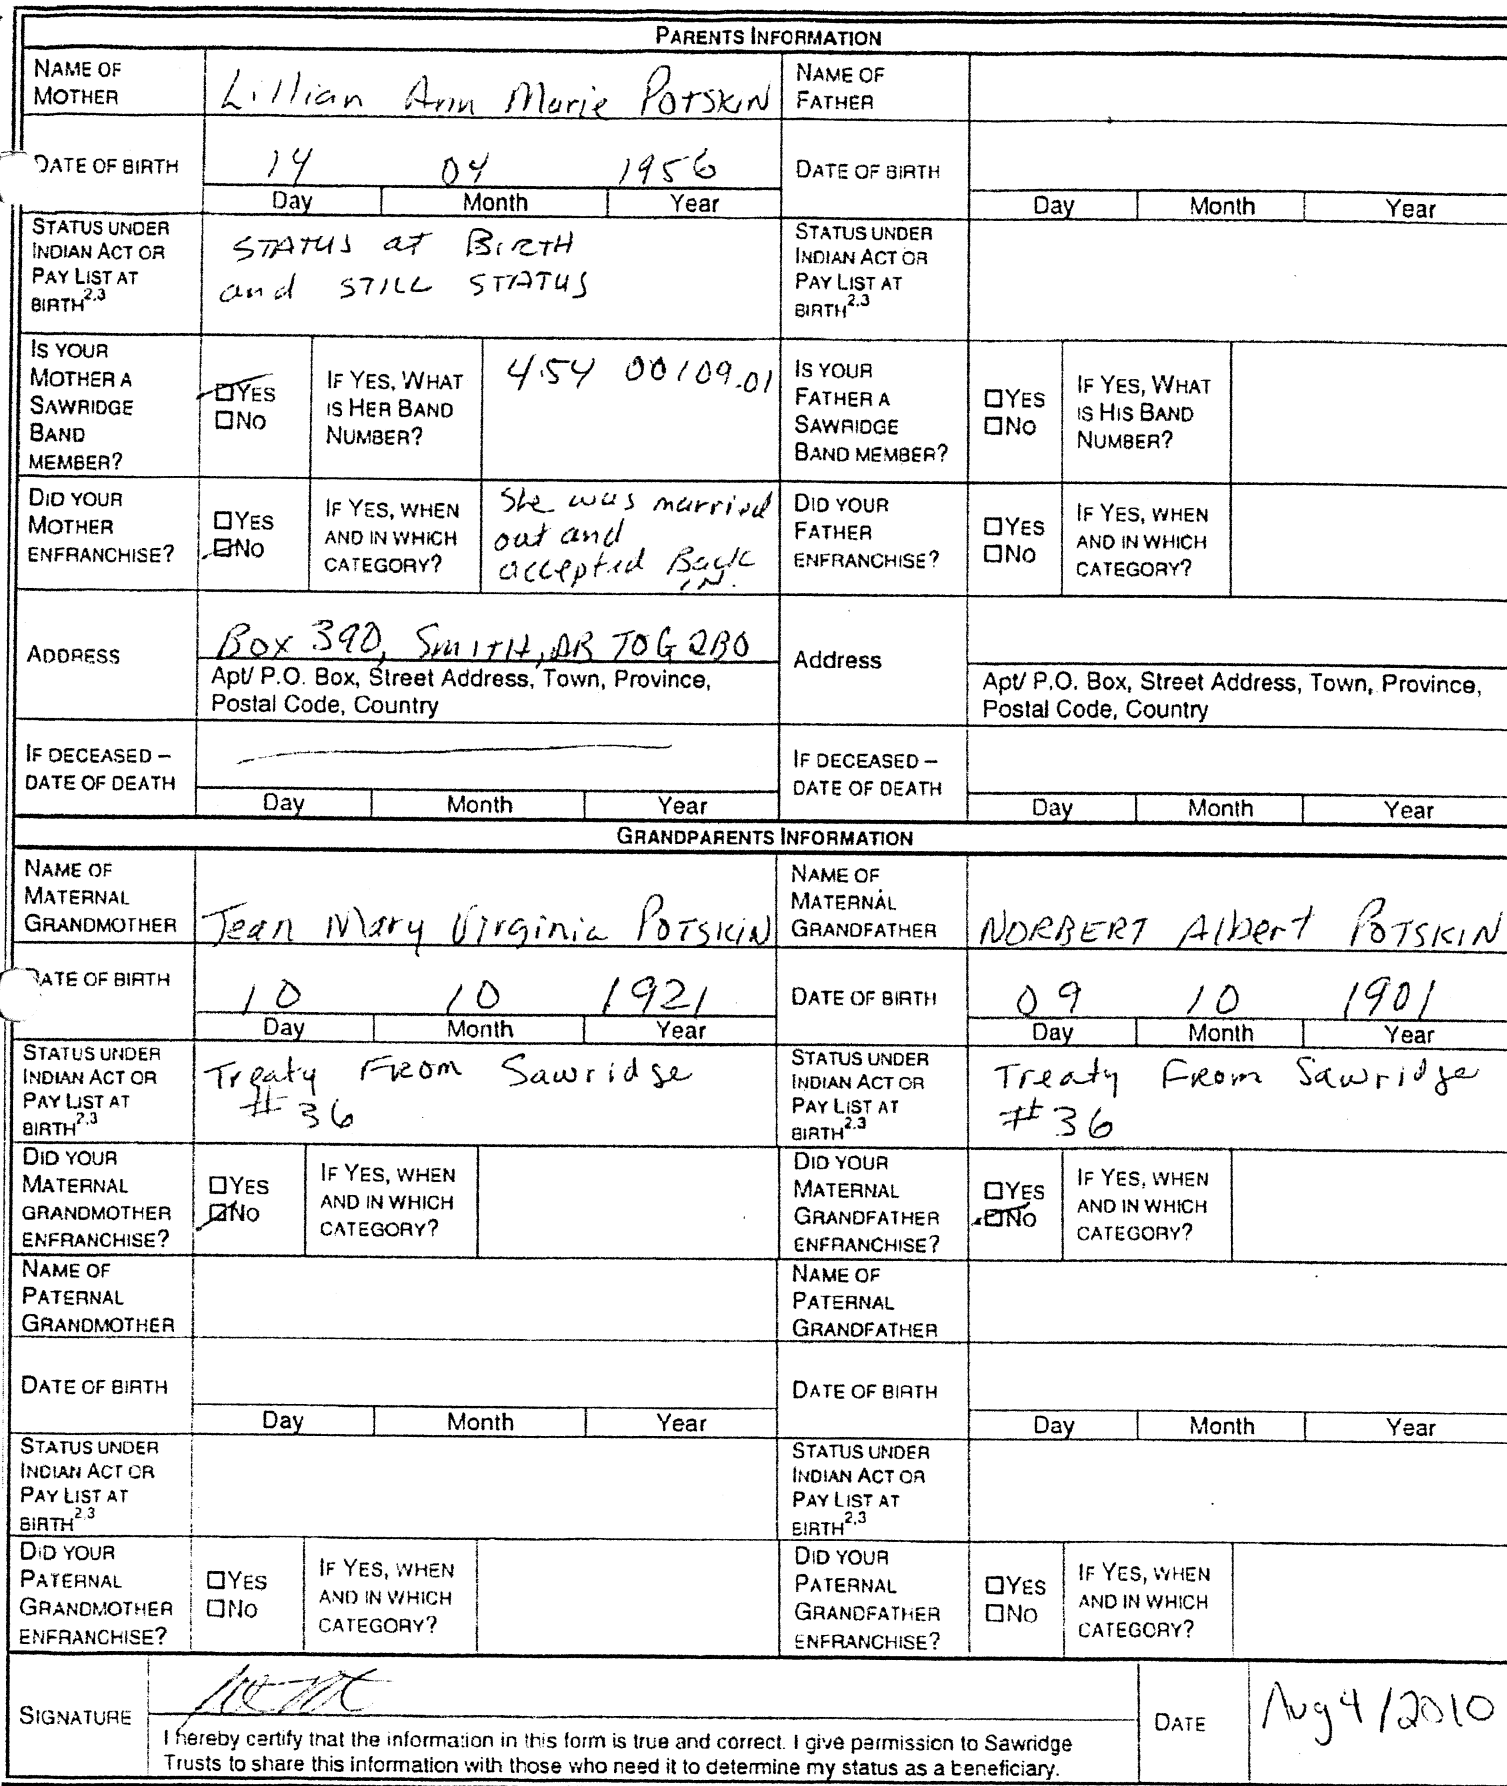 PARENTS INFORMATION
NAME OF MOTHER Lillian Ann Marie POTSKIN NAME OF FATHER
DATE OF BIRTH 14 04 1956 DATE OF BIRTH
Day Month Year Day Month Year
STATUS UNDER INDIAN ACT OR PAY LIST AT BIRTH2,3 STATUS at BIRTH and STILL STATUS STATUS UNDER INDIAN ACT OR PAY LIST AT BIRTH2,3
IS YOUR MOTHER A SAWRIDGE BAND MEMBER? ☐YES ☐NO IF YES, WHAT IS HER BAND NUMBER? 454 00109.01 IS YOUR FATHER A SAWRIDGE BAND MEMBER? ☐YES ☐NO IF YES, WHAT IS HIS BAND NUMBER?
DID YOUR MOTHER ENFRANCHISE? ☐YES ☐NO IF YES, WHEN AND IN WHICH CATEGORY? She was married out and accepted Back IN. DID YOUR FATHER ENFRANCHISE? ☐YES ☐NO IF YES, WHEN AND IN WHICH CATEGORY?
ADDRESS Box 390, SMITH, AB T0G 2B0 Address
Apt/ P.O. Box, Street Address, Town, Province, Apt/ P.O. Box, Street Address, Town, Province,
Postal Code, Country Postal Code, Country
IF DECEASED – DATE OF DEATH IF DECEASED – DATE OF DEATH
Day Month Year Day Month Year
GRANDPARENTS INFORMATION
NAME OF MATERNAL GRANDMOTHER Jean Mary Virginia POTSKIN NAME OF MATERNAL GRANDFATHER NORBERT Albert POTSKIN
DATE OF BIRTH 10 10 1921 DATE OF BIRTH 09 10 1901
Day Month Year Day Month Year
STATUS UNDER INDIAN ACT OR PAY LIST AT BIRTH2,3 Treaty FROM Sawridge #36 STATUS UNDER INDIAN ACT OR PAY LIST AT BIRTH2,3 Treaty FROM Sawridge #36
DID YOUR MATERNAL GRANDMOTHER ENFRANCHISE? ☐YES ☐NO IF YES, WHEN AND IN WHICH CATEGORY? DID YOUR MATERNAL GRANDFATHER ENFRANCHISE? ☐YES ☐NO IF YES, WHEN AND IN WHICH CATEGORY?
NAME OF PATERNAL GRANDMOTHER NAME OF PATERNAL GRANDFATHER
DATE OF BIRTH DATE OF BIRTH
Day Month Year Day Month Year
STATUS UNDER INDIAN ACT OR PAY LIST AT BIRTH2,3 STATUS UNDER INDIAN ACT OR PAY LIST AT BIRTH2,3
DID YOUR PATERNAL GRANDMOTHER ENFRANCHISE? ☐YES ☐NO IF YES, WHEN AND IN WHICH CATEGORY? DID YOUR PATERNAL GRANDFATHER ENFRANCHISE? ☐YES ☐NO IF YES, WHEN AND IN WHICH CATEGORY?
SIGNATURE DATE Aug 4/2010
I hereby certify that the information in this form is true and correct. I give permission to Sawridge
Trusts to share this information with those who need it to determine my status as a beneficiary.